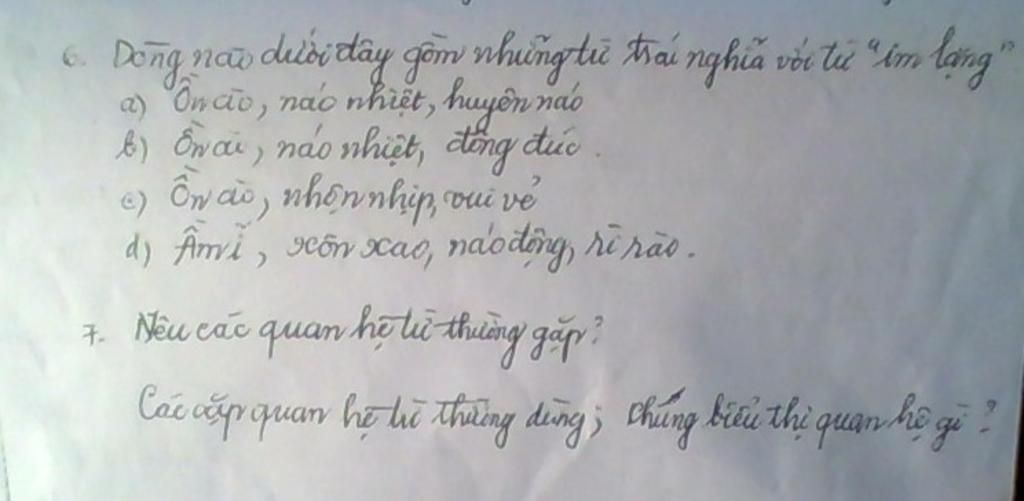 6. Dòng nào dưới đây gồm những từ trái nghĩa với từ "im lặng"
a) Ồn ào, náo nhiệt, huyên náo
b) Ồn ài, náo nhiệt, đông đúc.
c) Ồn ào, nhộn nhịp, vui vẻ
d) Ầm ĩ, xôn xao, náo động, rì rào.
7. Nêu các quan hệ từ thường gặp?
Các cặp quan hệ từ thường dùng; chúng biểu thị quan hệ gì?